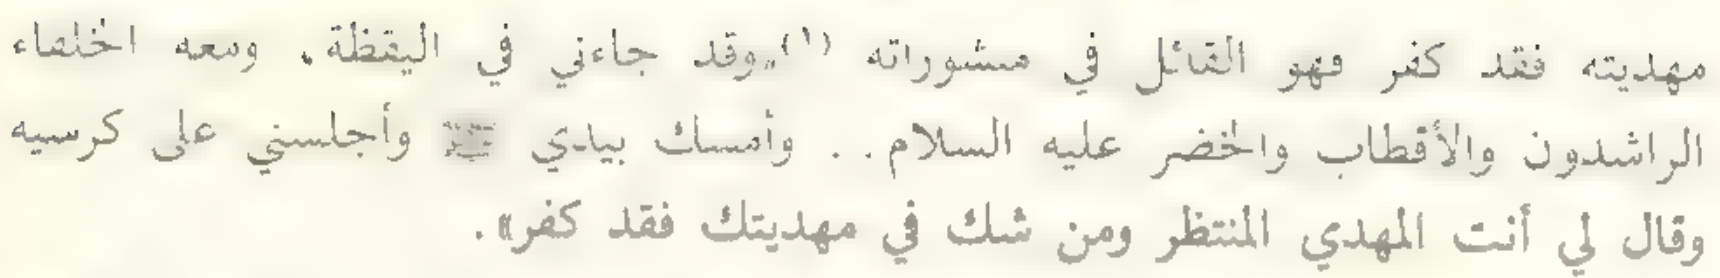 مهديته فقد كفر فهو القائل في مشوراته (١) «وقد جاءني في اليقظة، ومعه الخلفاء
الراشدون والأقطاب والخضر عليه السلام . . وأمسك بيدي ﷺ وأجلسني على كرسيه
وقال لي أنت المهدي المنتظر ومن شك في مهديتك فقد كفر» .